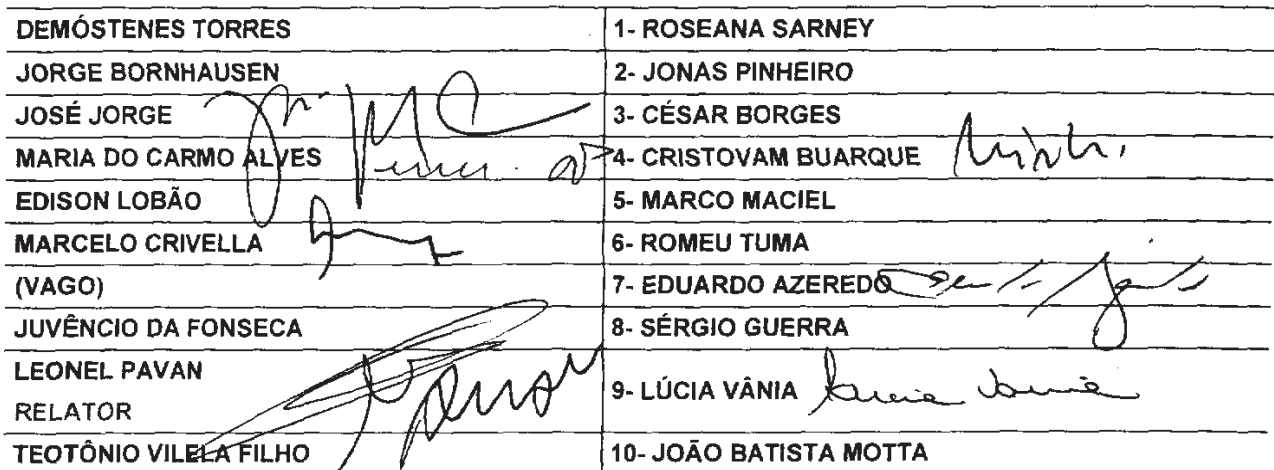 DEMÓSTENES TORRES 1- ROSEANA SARNEY
JORGE BORNHAUSEN 2- JONAS PINHEIRO
JOSÉ JORGE 3- CÉSAR BORGES
MARIA DO CARMO ALVES 4- CRISTOVAM BUARQUE
EDISON LOBÃO 5- MARCO MACIEL
MARCELO CRIVELLA 6- ROMEU TUMA
(VAGO) 7- EDUARDO AZEREDO
JUVÊNCIO DA FONSECA 8- SÉRGIO GUERRA
LEONEL PAVAN
RELATOR 9- LÚCIA VÂNIA
TEOTÔNIO VILELA FILHO 10- JOÃO BATISTA MOTTA